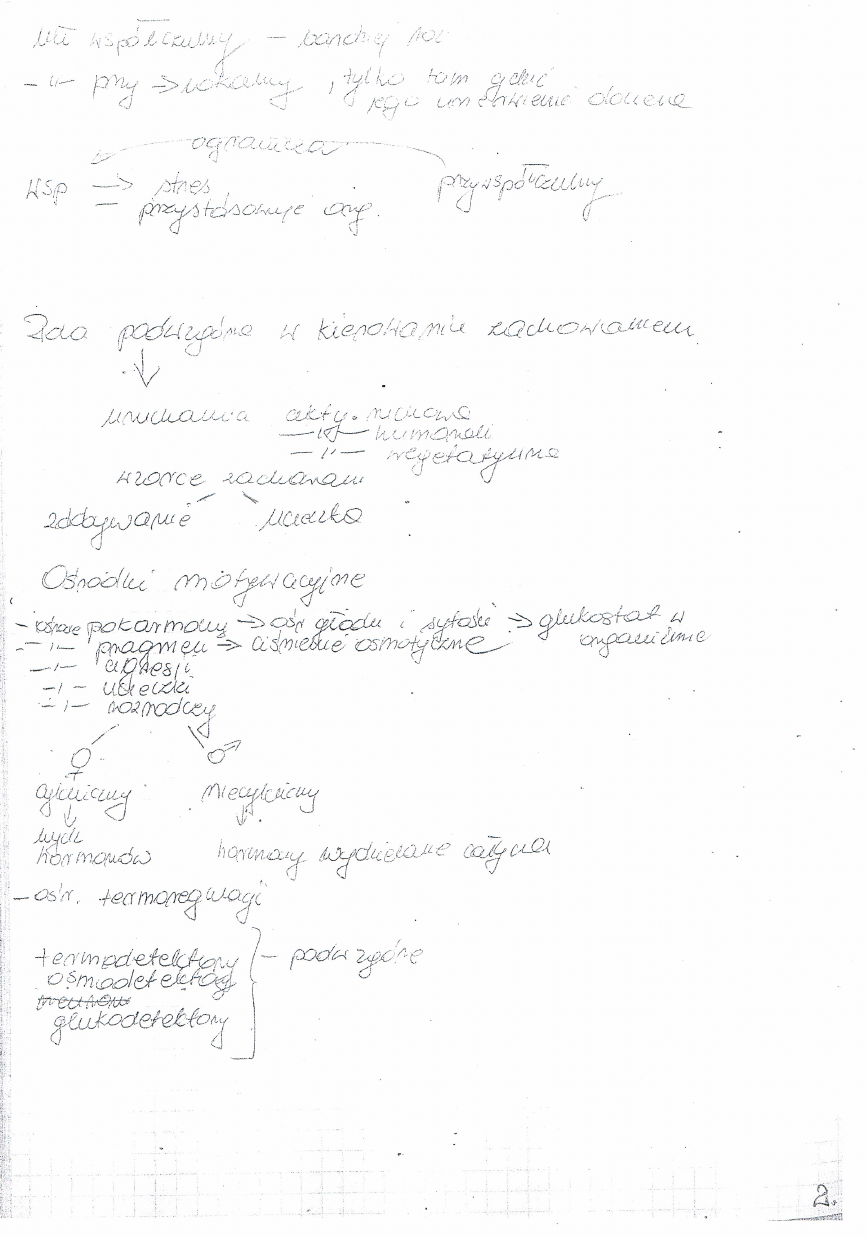 Ukł współczulny – bardziej roz
–"– przy → lokalny, tylko tam gdzie
jego unerwienie dociera
ogranicza
WSP → stres przywspółczulny
– przystosowuje org.
Rola podwzgórza w kierowaniu zachowaniem
uruchamia akty. ruchowe
–"– humoral
–"– wegetatywne
wzorce zachowań
zdobywanie ucieczka
Ośrodki motywacyjne
– pokarmowy → ośr głodu i sytości → glukostat w
organizmie
–"– pragnień → ciśnienie osmotyczne
–"– agresji
–"– ucieczki
–"– rozrodczy
♀ ♂
cykliczny niecykliczny
wydz.
hormonów hormony wydzielane cały czas
– ośr. termoregulacji
termodetektory – podwzgórze
osmodetektory
glukodetektory
2.